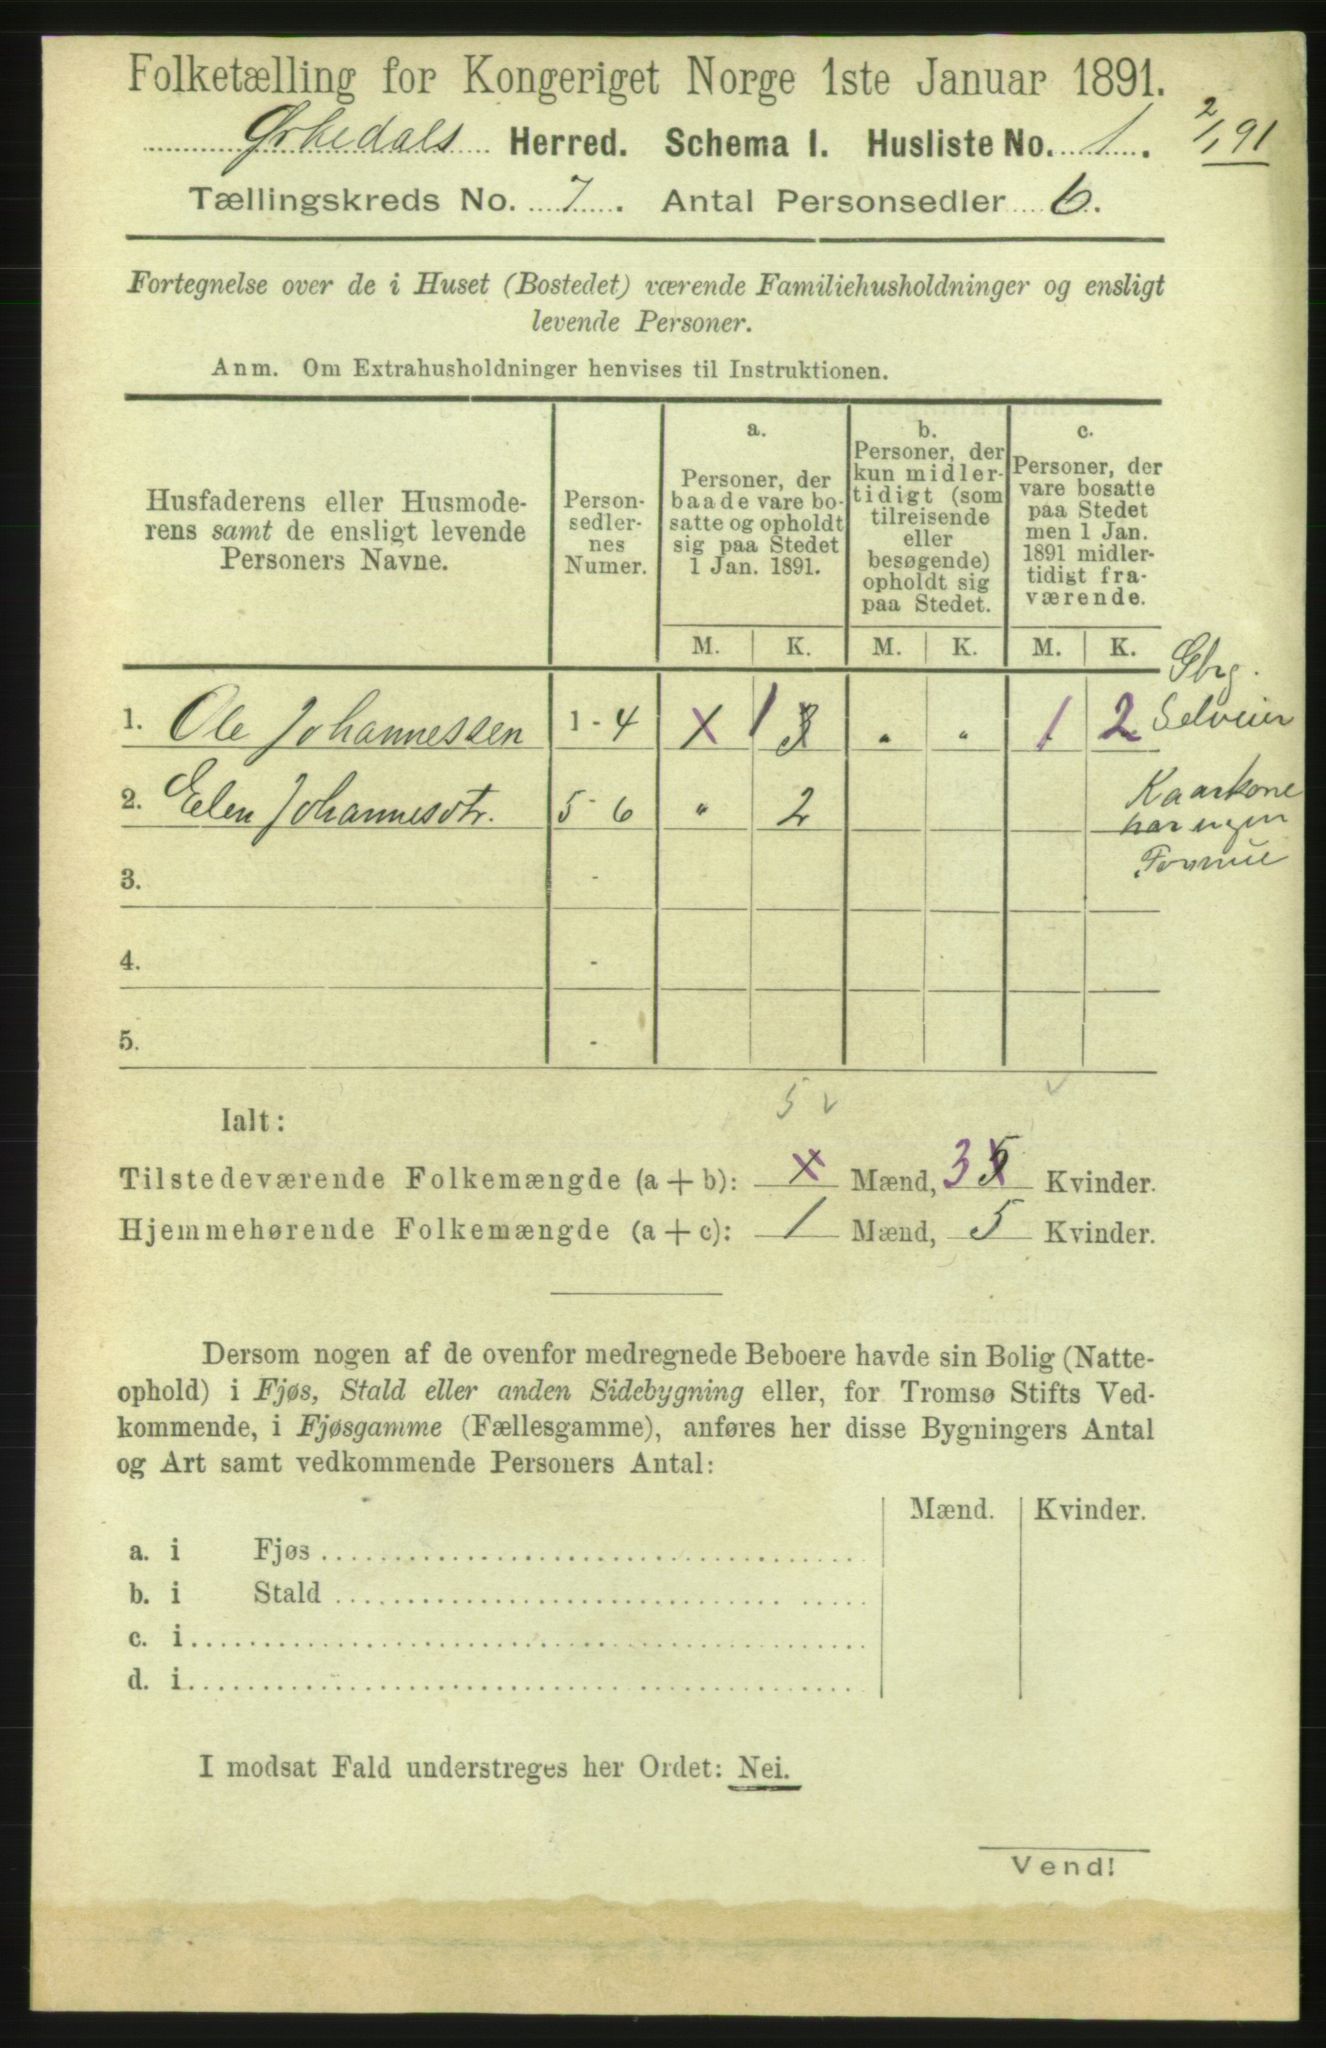 Folketælling for Kongeriget Norge 1ste Januar 1891.
Ørkedals Herred. Schema I. Husliste No. 1.
2/1 91
Tællingskreds No. 7. Antal Personsedler 6.
Fortegnelse over de i Huset (Bostedet) værende Familiehusholdninger og ensligt
levende Personer.
Anm. Om Extrahusholdninger henvises til Instruktionen.
Husfaderens eller Husmode-
rens samt de ensligt levende
Personers Navne.
Person-
sedler-
nes
Numer.
a.
Personer, der
baade vare bo-
satte og opholdt
sig paa Stedet
1 Jan. 1891.
b.
Personer, der
kun midler-
tidigt (som
tilreisende
eller
besøgende)
opholdt sig
paa Stedet.
c.
Personer, der
vare bosatte
paa Stedet
men 1 Jan.
1891 midler-
tidigt fra-
værende.
M. K. M. K. M. K.
1. Ole Johannessen 1 - 4 x 1 3 " " 1 2
Gbrg.
Selveier
2. Elen Johannesdtr. 5 - 6 " 2
Kaarkone
har ingen
Formue
3. -
4. -
5. -
5 v v
Ialt:
Tilstedeværende Folkemængde (a + b): x Mænd, 3 5 Kvinder.
Hjemmehørende Folkemængde (a + c): 1 Mænd, 5 Kvinder.
Dersom nogen af de ovenfor medregnede Beboere havde sin Bolig (Natte-
ophold) i Fjøs, Stald eller anden Sidebygning eller, for Tromsø Stifts Ved-
kommende, i Fjøsgamme (Fællesgamme), anføres her disse Bygningers Antal
og Art samt vedkommende Personers Antal:
Mænd. Kvinder.
a. i Fjøs
b. i Stald
c. i
d. i
I modsat Fald understreges her Ordet: Nei.
Vend!